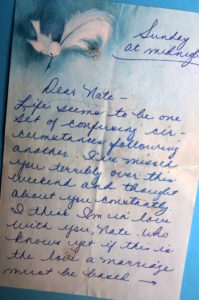 Sunday
at midnight
Dear Nate -
Life seems to be one
set of confusing cir-
cumstances following
another. I've missed
you terribly over this
weekend and thought
about you constantly
I think I'm in love
with you, Nate. Who
knows yet if this is
the love a marriage
must be based —